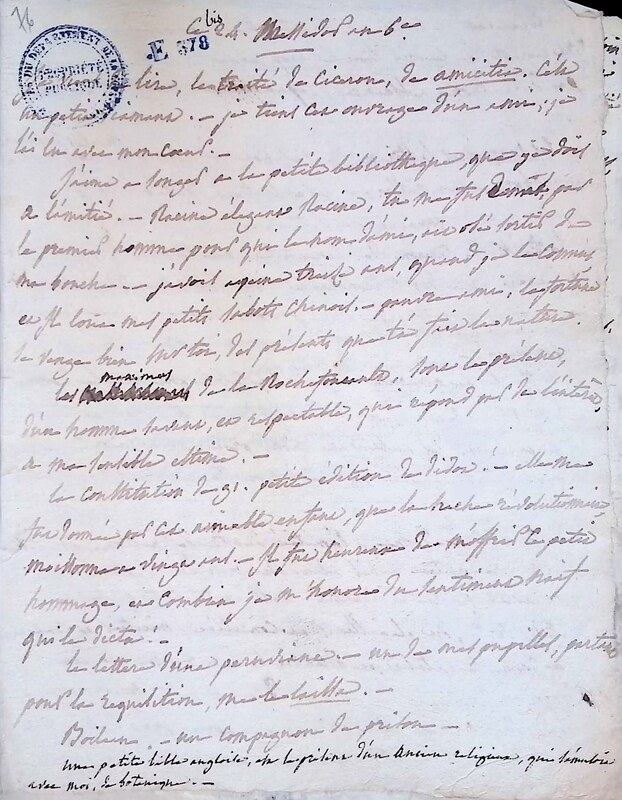 76
bis
Ce 24. Messidor an 6e
E 378
PROPRIÉTÉ PUBLIQUE
lire, le traité de Ciceron, de amicitia. C'est
un petit — je tiens cet ouvrage d'un ami, je
l'ai lu avec mon cœur. —
J'aime a songer a la petite bibliotheque, que je dois
a l'amitié. — Racine élégant Racine, tu me fus donné, par
le premier homme pour qui le nom d'ami, ait osé sortir de
ma bouche. — j'avois apeine treize ans, quand je le connus
et il loua mes petits sabots chinois. — pauvre ami, la fortune
se venge bien sur toi, des présents que t'a fait la nature.
les maximes de la Rochefoucault, sont le présent,
d'un homme savant, et respectable, qui répond par de l'intérêt,
a ma sensible estime. —
la Constitution de 91. petite édition de didot. — elle me
fut donnée par cet aimable enfant, que la hache révolutionnaire
moissonna a vingt ans. — Il fut heureux de m'offrir ce petit
hommage, et combien je m'honore du sentiment naïf
qui le dicta. —
les lettres d'une peruvienne. — un de mes pupilles, partant
pour la requisition, me les laissa. —
Boileau. — un compagnon de prison —
une petite bible angloise, est le présent d'un ancien religieux, qui
avec moi, de botanique. —